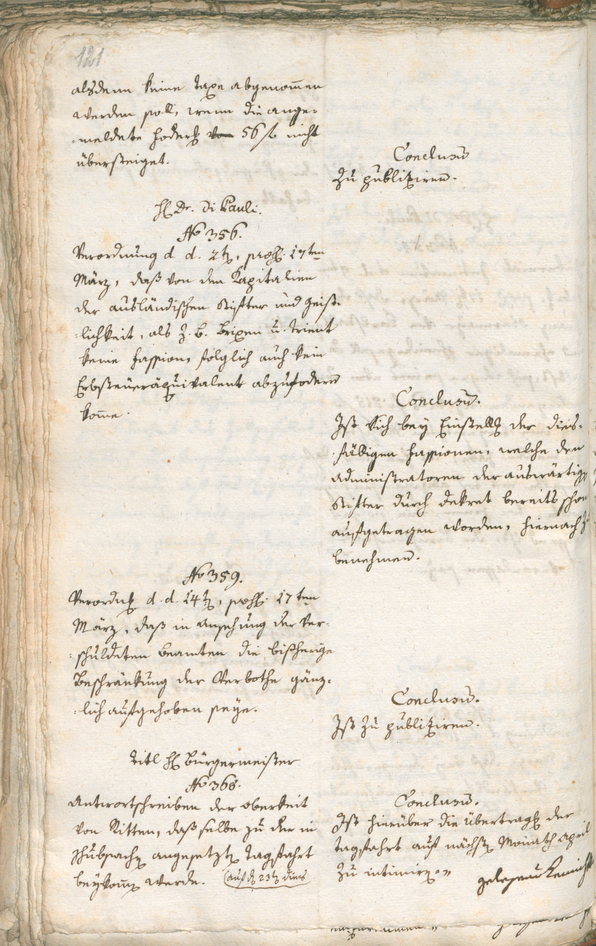 121
alsdenn keine Taxe abgenom̄en
werden soll, wenn die ange-
meldete 56 f nicht
übersteiget.
Conclusum
Zu publiziren.
H. Dr. Di Pauli.
No 356.
Verordnung d. d. 17ten
März, daß von den Kapitalien
der ausländischen Stifter und Geist-
lichkeit, als z. B. Brixen u. Trient
keine Fassion, folglich auch kein
Erbsteueräquivalent abzufodern
kom̄e.
Conclusum.
Ist sich bey Einstellg der dies-
fälligen Fassionen, welche den
Administratoren der auswärtigen
Stifter durch Dekret bereits schon
aufgetragen worden, hiernach zu
benehmen.
No 359.
Verordng d. d. 14t, 17ten
März, daß in Ansehung der ver-
schuldeten Beamten die bißherige
Beschränkung der Verbothe gänz-
lich aufgehoben seye.
Conclusum.
Ist zu publiziren.
Titl H. Bürgermeister
No 368.
Antwortschreiben der Oberkeit
von Ritten, daß selbe zu der in
angesetzte Tagsfahrt
beykom̄en werde. (auf d. 23t dies)
Conclusum.
Ist hierüber die Übertragg der
Tagsfahrt auf nächst. Monath April
zu intimiren